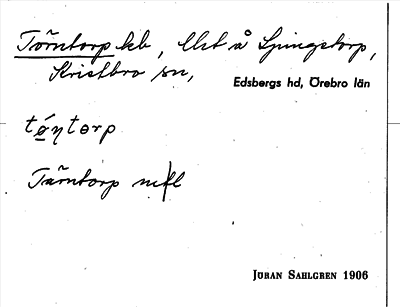 Törntorp hb, Ulst å Ljungstorp,
Kristbro sn,
Edsbergs hd, Örebro län
tǿŋtorp
Tarntorp mfl
JÖRAN SAHLGREN 1906